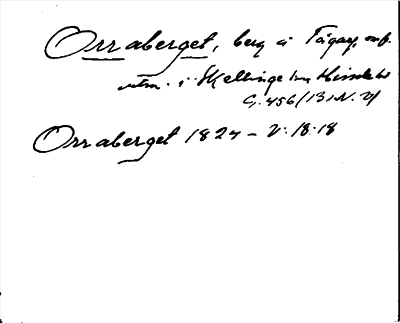 Orraberget, berg å Tågarp, enf.
utm. i Skellinge sn Himle hd
G. 456/13, N. 4
Orraberget 1824 - V: 18:18